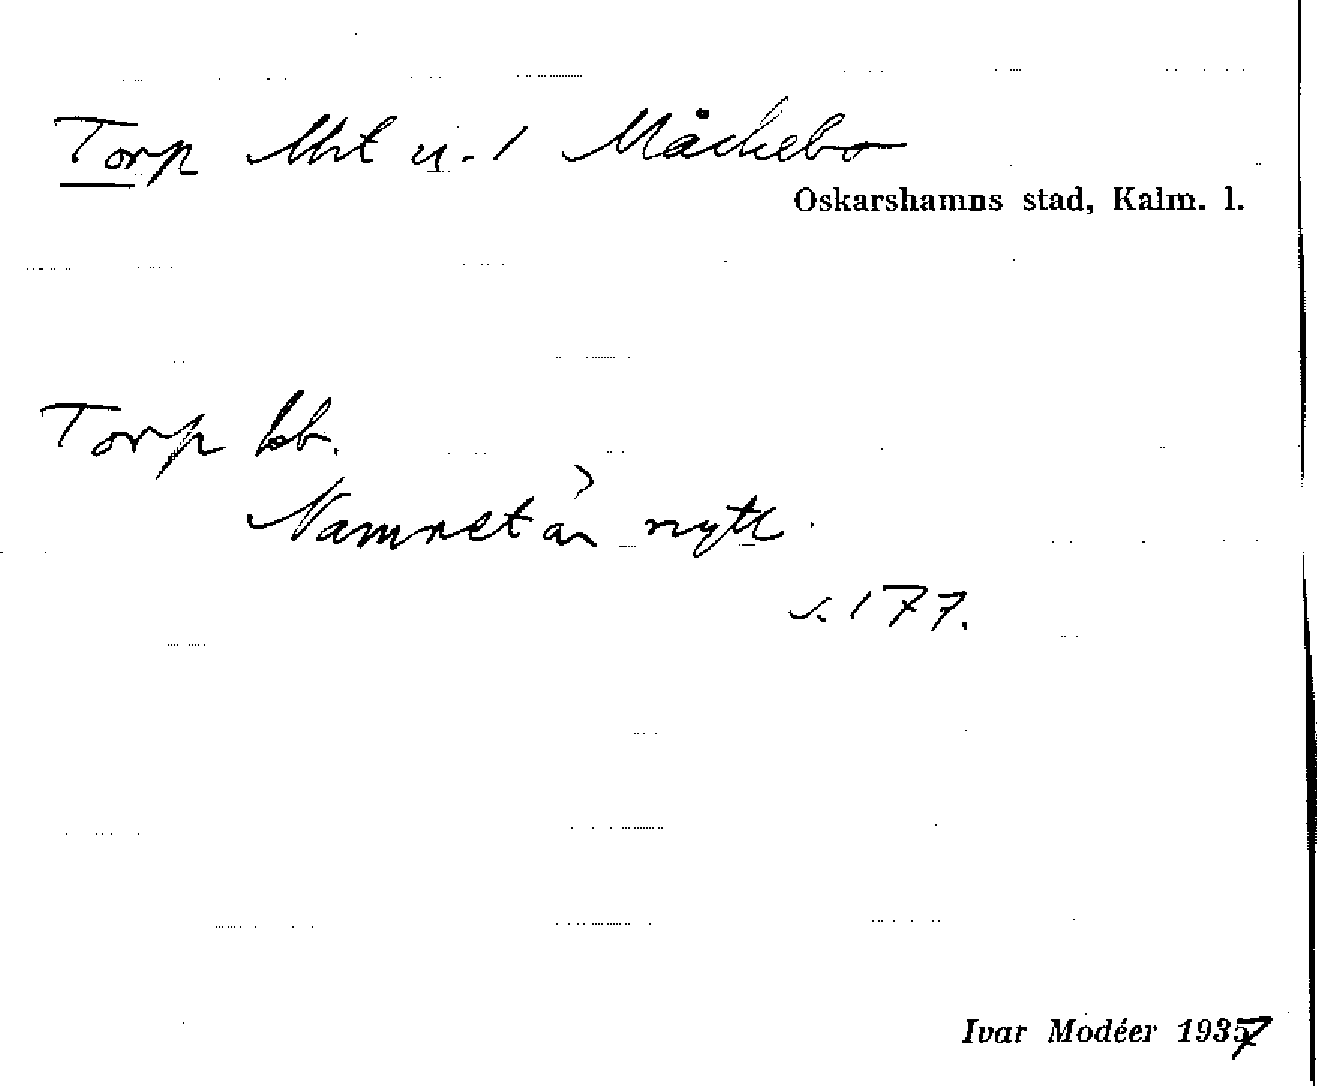 Torp Mnt u. 1 Måckebo
Oskarshamns stad, Kalm. l.
Torp bb.
Namnet är nytt.
s. 177.
Ivar Modéer 1937